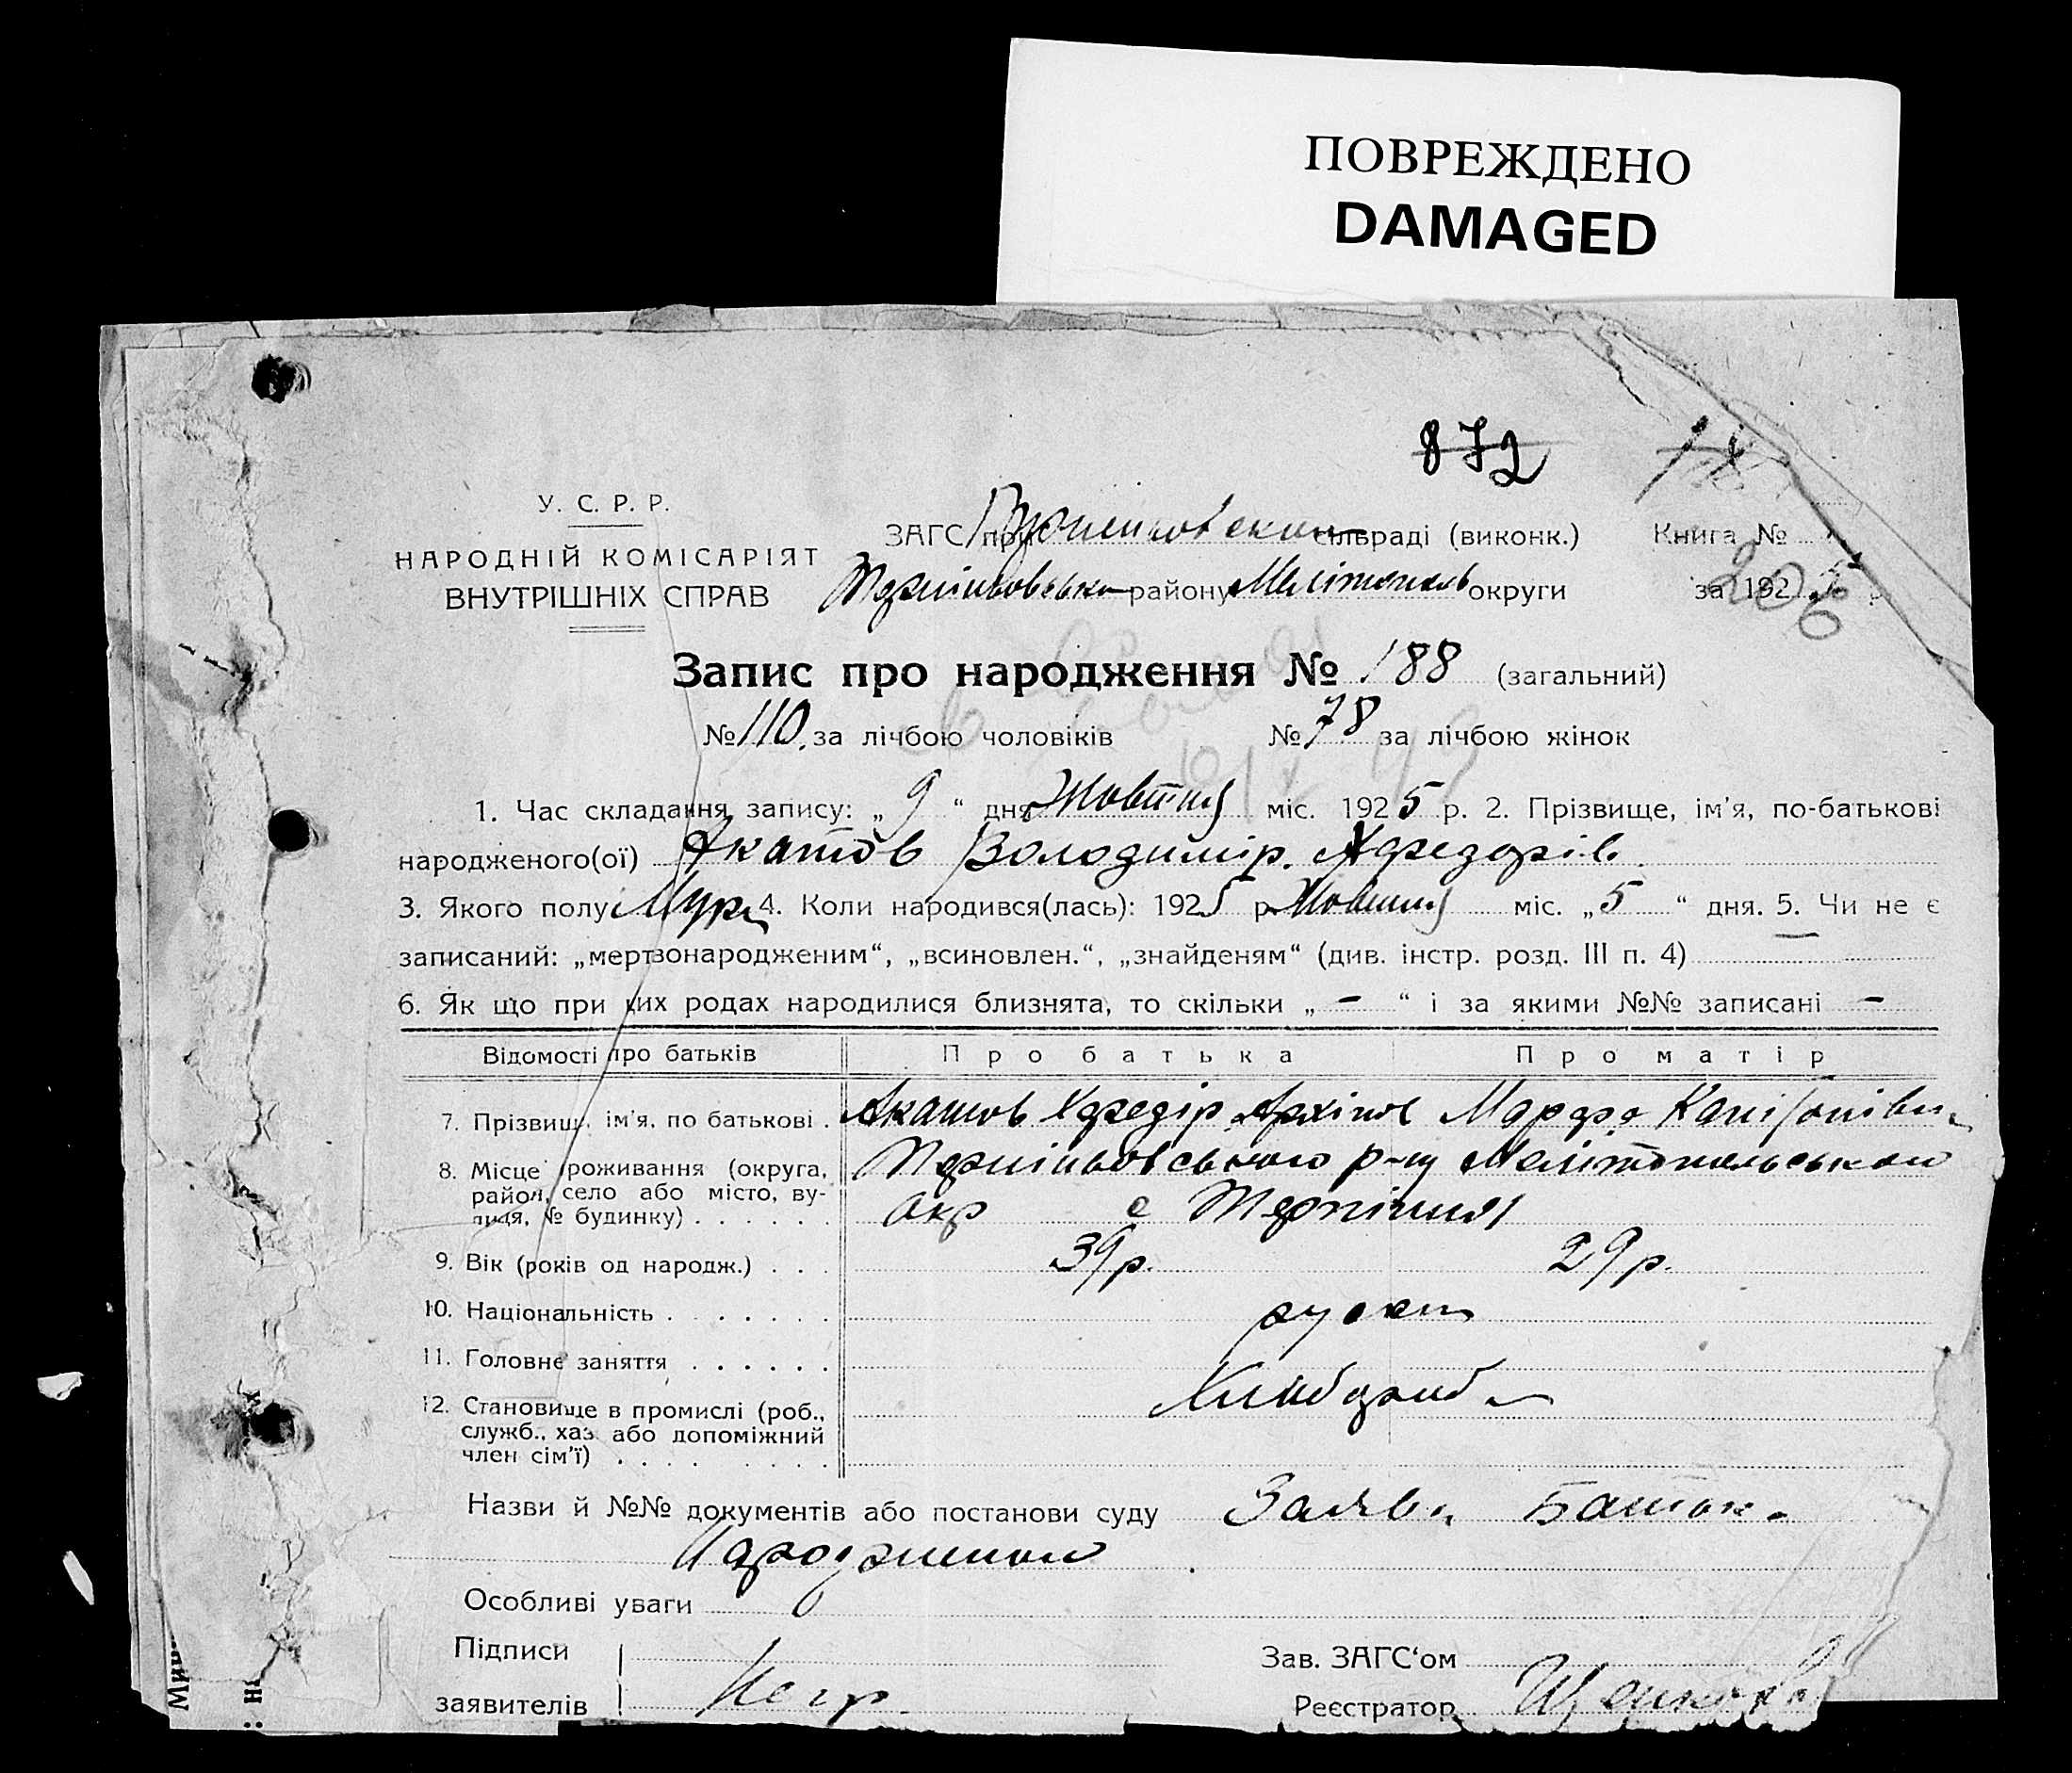 ПОВРЕЖДЕНО
DAMAGED
872
У. С. Р. Р.
НАРОДНІЙ КОМІСАРІЯТ
ВНУТРІШНІХ СПРАВ
ЗАГС при сільраді (виконк.)
районц Мелітополь округи
Книга №
за 1925 р.
206
Запис про народження № 188 (загальний)
№ 110 за лічбою чоловіків № 78 за лічбою жінок
1. Час складання запису: „ 9 “ дня Жовтня міс. 1925 р. 2. Прізвище, ім'я, по-батькові
народженого(ої) Акатов Володимір. Хфедорів.
3. Якого полу Муж 4. Коли народився(лась): 1925 р. Жовтня міс. „ 5 “ дня. 5. Чи не є
записаний: „мертвонародженим“, „всиновлен.“, „знайденям“ (див. інстр. розд. III п. 4)
6. Як що при цих родах народилися близнята, то скільки „ – “ і за якими №№ записані –
Відомості про батьків Про батька Про матір
7. Прізвище, ім'я, по батькові . Акатов Хфедір Архіпов Марфа
8. Місце проживання (округа, район, село або місто, вулиця, № будинку) . . . . . . Терпіньовського р-ну Мелітопольськои
окр с Терпіння
9. Вік (років од народж.) . . . 39 р. 29 р.
10. Національність . . . . . . .
11. Головне заняття . . . . . .
Хлібороб
12. Становище в промислі (роб.,
служб., хаз. або допоміжний
член сім'ї) . . . . . . . . .
Назви й №№ документів або постанови суду Заява Батьк.
Особливі уваги
Підписи
заявителів Негр.
Зав. ЗАГС‘ом
Реєстратор